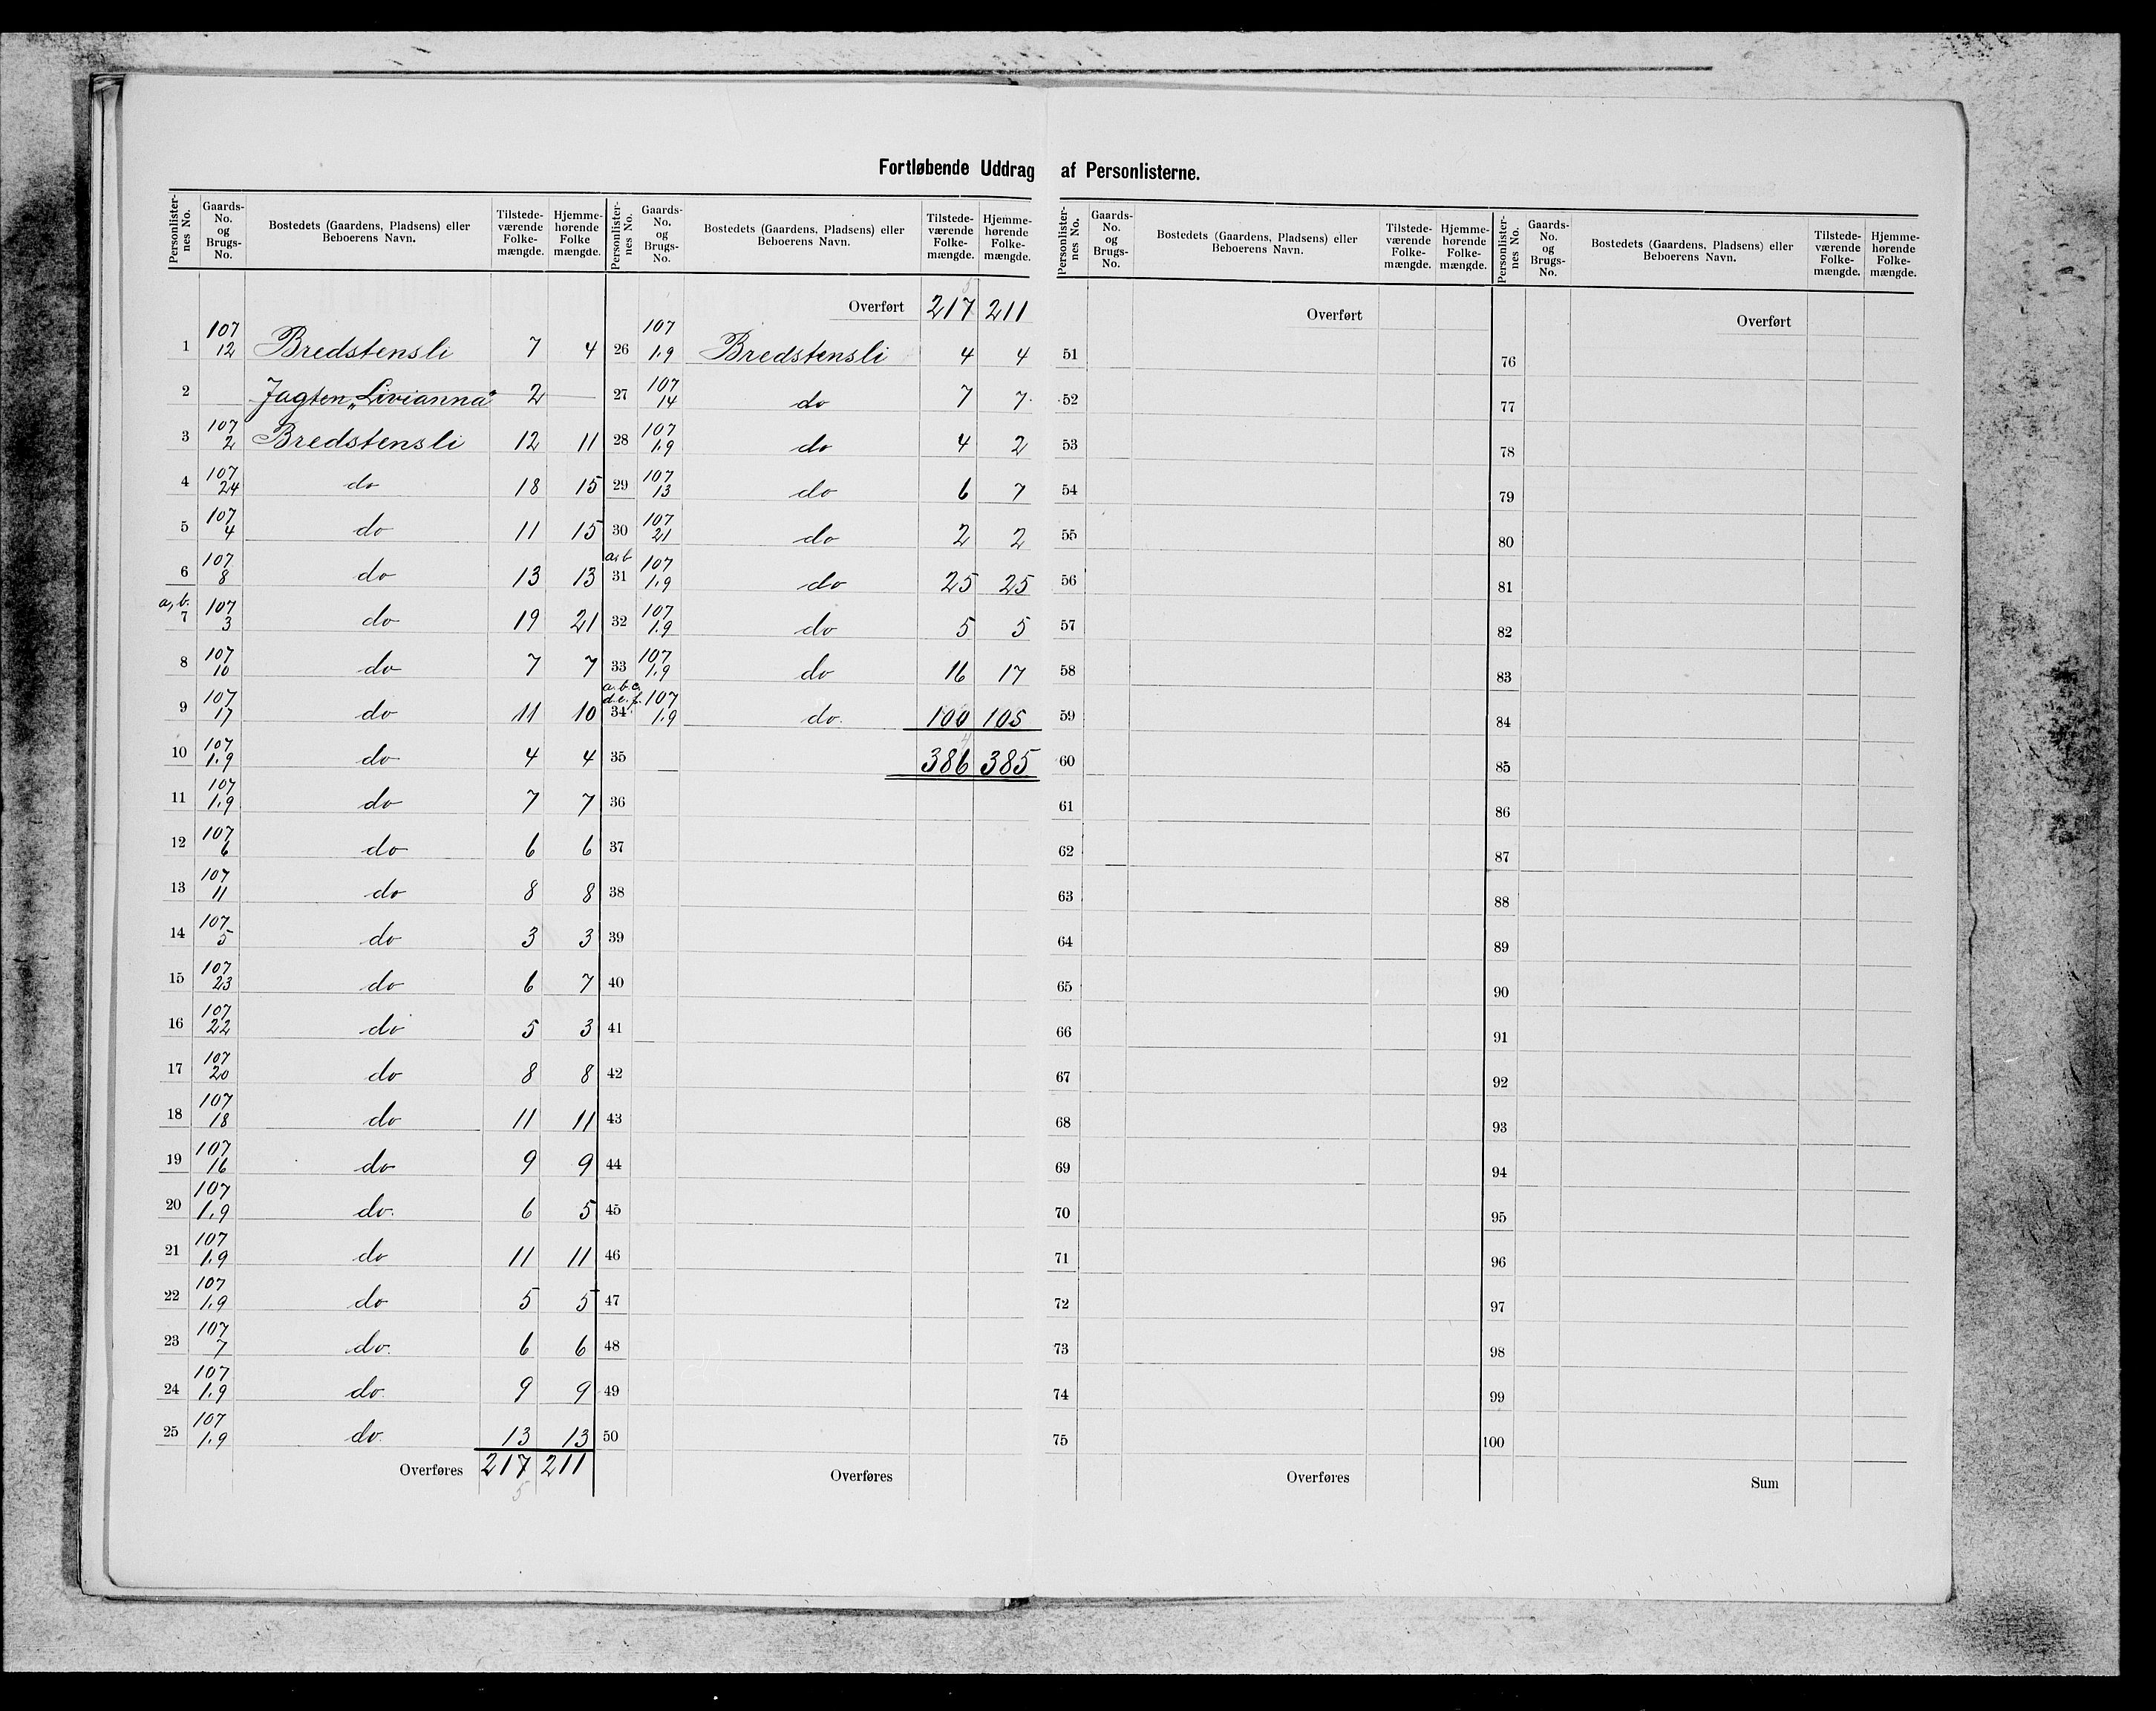 Fortløbende Uddrag af Personlisterne.
Personlisternes No. | Gaards-No. og Brugs-No. | Bostedets (Gaardens, Pladsens) eller Beboerens Navn. | Tilstedeværende Folkemængde. | Hjemmehørende Folke mængde.
1 | 107 12 | Bredstensli | 7 | 4
2 | Jagten „Livianna" | 2
3 | 107 2 | Bredstensli | 12 | 11
4 | 107 24 | do | 18 | 15
5 | 107 4 | do | 11 | 15
6 | 107 8 | do | 13 | 13
a, b. 7 | 107 3 | do | 19 | 21
8 | 107 10 | do | 7 | 7
9 | 107 17 | do | 11 | 10
10 | 107 1.9 | do | 4 | 4
11 | 107 1.9 | do | 7 | 7
12 | 107 6 | do | 6 | 6
13 | 107 11 | do | 8 | 8
14 | 107 5 | do | 3 | 3
15 | 107 23 | do | 6 | 7
16 | 107 22 | do | 5 | 3
17 | 107 20 | do | 8 | 8
18 | 107 18 | do | 11 | 11
19 | 107 16 | do | 9 | 9
20 | 107 1.9 | do. | 6 | 5
21 | 107 1.9 | do | 11 | 11
22 | 107 1.9 | do | 5 | 5
23 | 107 7 | do. | 6 | 6
24 | 107 1.9 | do. | 9 | 9
25 | 107 1.9 | do. | 13 | 13
Overføres | 217 | 211
5
Personlisternes No. | Gaards-No. og Brugs-No. | Bostedets (Gaardens, Pladsens) eller Beboerens Navn. | Tilstedeværende Folkemængde. | Hjemmehørende Folkemængde.
5
Overført | 217 | 211
26 | 107 1.9 | Bredstensli | 4 | 4
27 | 107 14 | do | 7 | 7
28 | 107 1.9 | do | 4 | 2
29 | 107 13 | do | 6 | 7
30 | 107 21 | do | 2 | 2
a, b 31 | 107 1.9 | do | 25 | 25
32 | 107 1.9 | do | 5 | 5
33 | 107 1.9 | do | 16 | 17
a. b. c. d. e. f. 34 | 107 1.9 | do. | 100 | 105
4
35 | 386 | 385
36
37
38
39
40
41
42
43
44
45
46
47
48
49
50
Overføres
Personlisternes No. | Gaards-No. og Brugs-No. | Bostedets (Gaardens, Pladsens) eller Beboerens Navn. | Tilstedeværende Folkemængde. | Hjemmehørende Folkemængde.
Overført
51
52
53
54
55
56
57
58
59
60
61
62
63
64
65
66
67
68
69
70
71
72
73
74
75
Overføres
Personlisternes No. | Gaards-No. og Brugs-No. | Bostedets (Gaardens, Pladsens) eller Beboerens Navn. | Tilstedeværende Folkemængde. | Hjemmehørende Folkemængde.
Overført
76
77
78
79
80
81
82
83
84
85
86
87
88
89
90
91
92
93
94
95
96
97
98
99
100
Sum